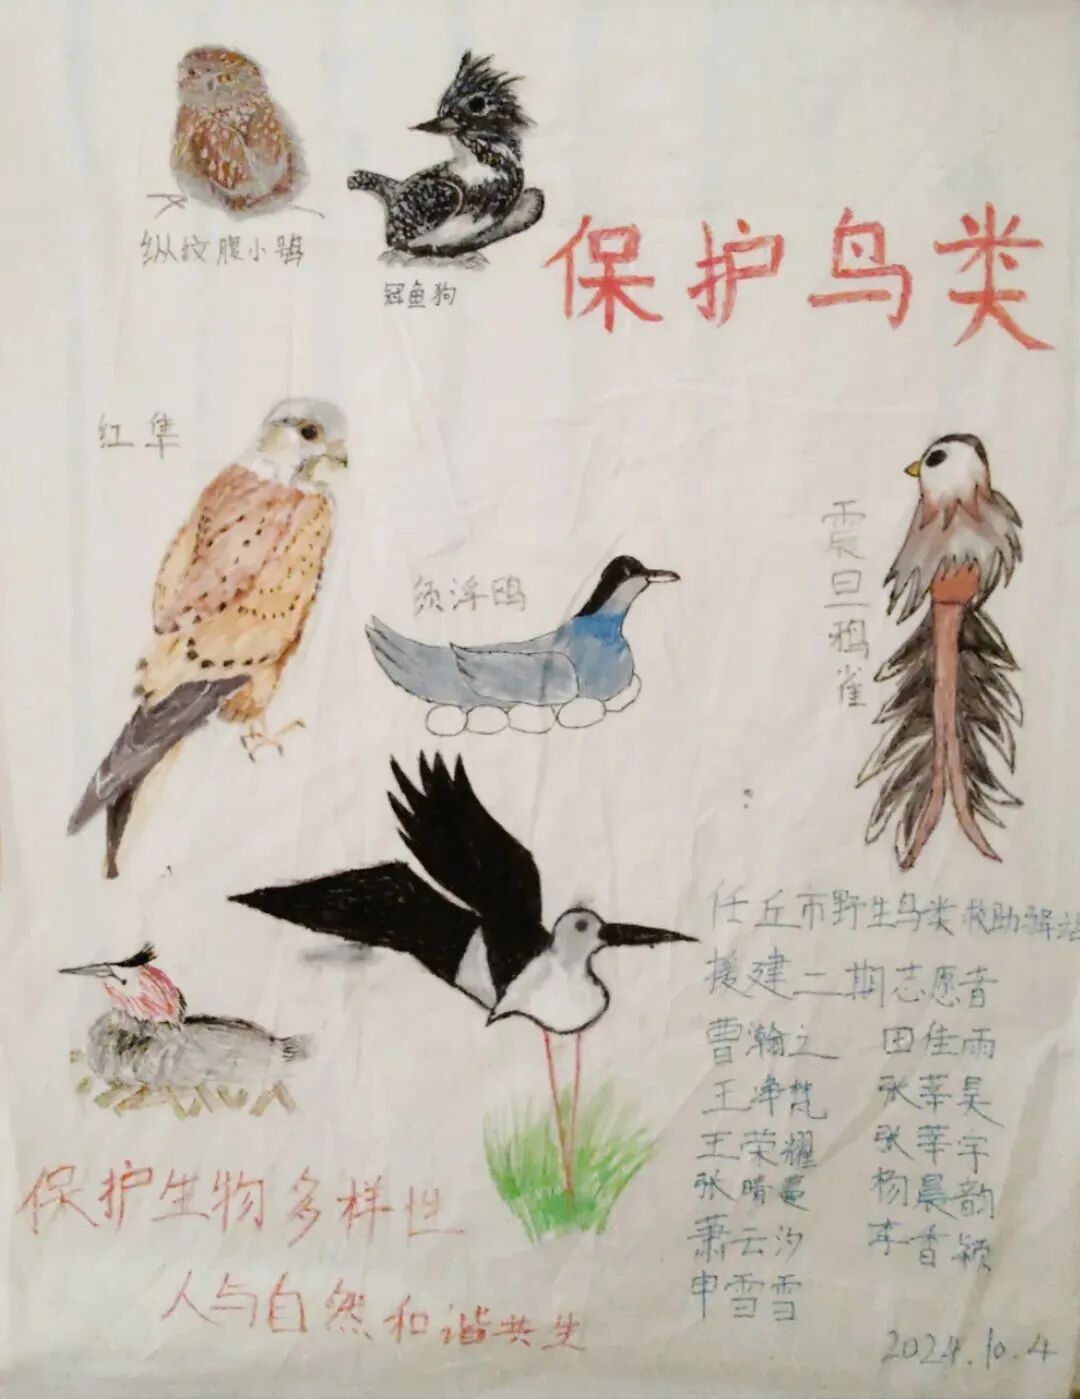 纵纹腹小鸮
冠鱼狗
保护鸟类
红隼
须浮鸥
震旦鸦雀
任丘市野生鸟类救助驿站
援建二期志愿者
曹瀚之 田佳雨
王净梵 张莘昊
王荣耀 张莘宇
张晴 杨晨韵
萧云汐 李香颖
申雪雪
保护生物多样性
人与自然和谐共生
2024.10.4